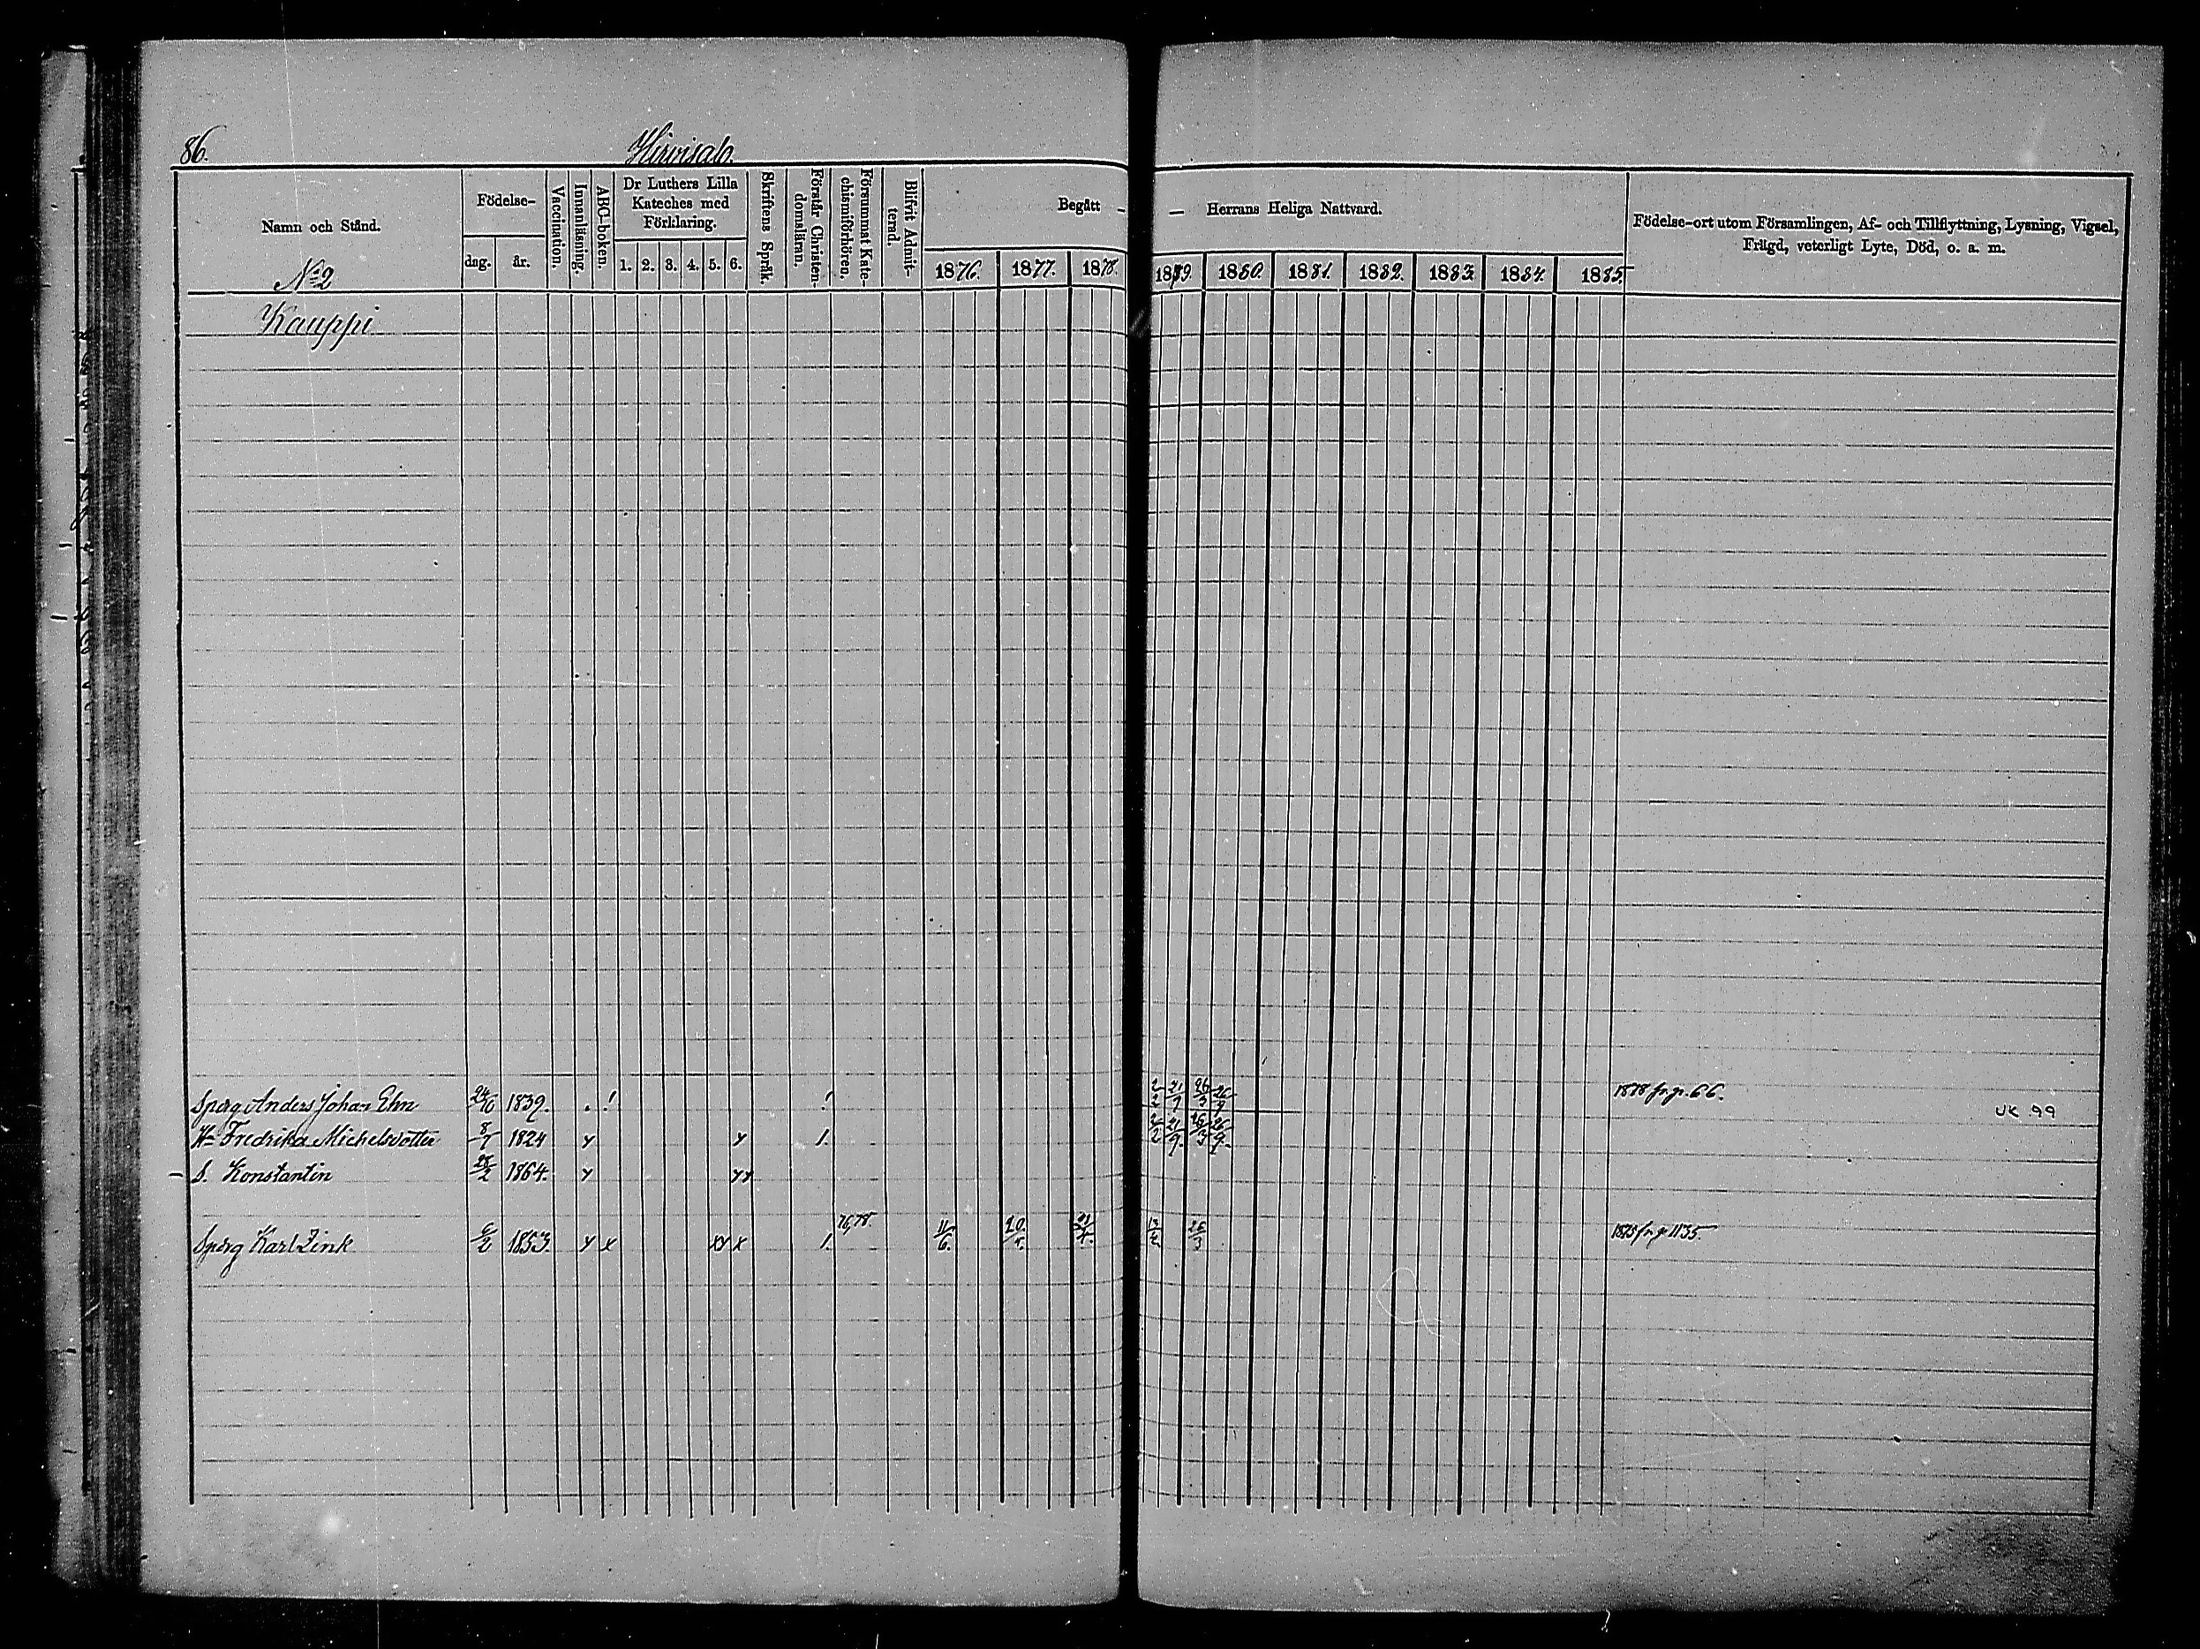 86.
Hirvisalo.
Namn och Stånd.
Födelse-
dag.
år.
Vaccination.
Innanläsning.
ABC-boken.
Dr Luthers Lilla
Kateches med
Förklaring.
1. 2. 3. 4. 5. 6.
Skriftens Språk.
Förstår Christen-
domsläran.
Försummat Kate-
chismiförhören.
Blifvit Admit-
terad.
Begått - - Herrans Heliga Nattvard.
1876. 1877. 1878. 1879. 1880. 1881. 1882. 1883. 1884. 1885.
Födelse-ort utom Församlingen, Af- och Tillflyttning, Lysning, Vigsel,
Frägd, veterligt Lyte, Död, o. a. m.
No 2
Kauppi
Sperg Anders Johan Ehn 24/10 1839. 2/2 21/9 26/3 26/9 1878 fr. p. 66.
UK 99
Hu Fredrika Michelsdotter 8/7 1824 2/2 21/9. 26/3 26/9.
S. Konstantin 28/2 1864.
76,78.
Sperg Karl Zink 6/2 1853. 11/6. 26/3 fr p 1135.